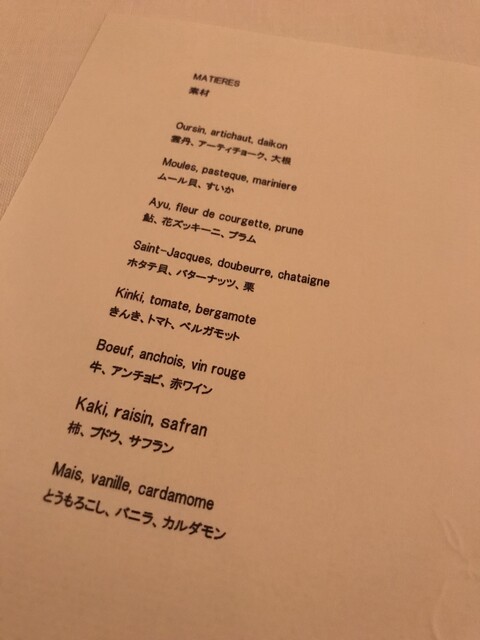 MATIERES
素材
Oursin, artichaut, daikon
雲丹、アーティチョーク、大根
Moules, pasteque, mariniere
ムール貝、すいか
Ayu, fleur de courgette, prune
鮎、花ズッキーニ、プラム
Saint-Jacques, doubeurre, chataigne
ホタテ貝、バターナッツ、栗
Kinki, tomate, bergamote
きんき、トマト、ベルガモット
Boeuf, anchois, vin rouge
牛、アンチョビ、赤ワイン
Kaki, raisin, safran
柿、ブドウ、サフラン
Mais, vanille, cardamome
とうもろこし、バニラ、カルダモン